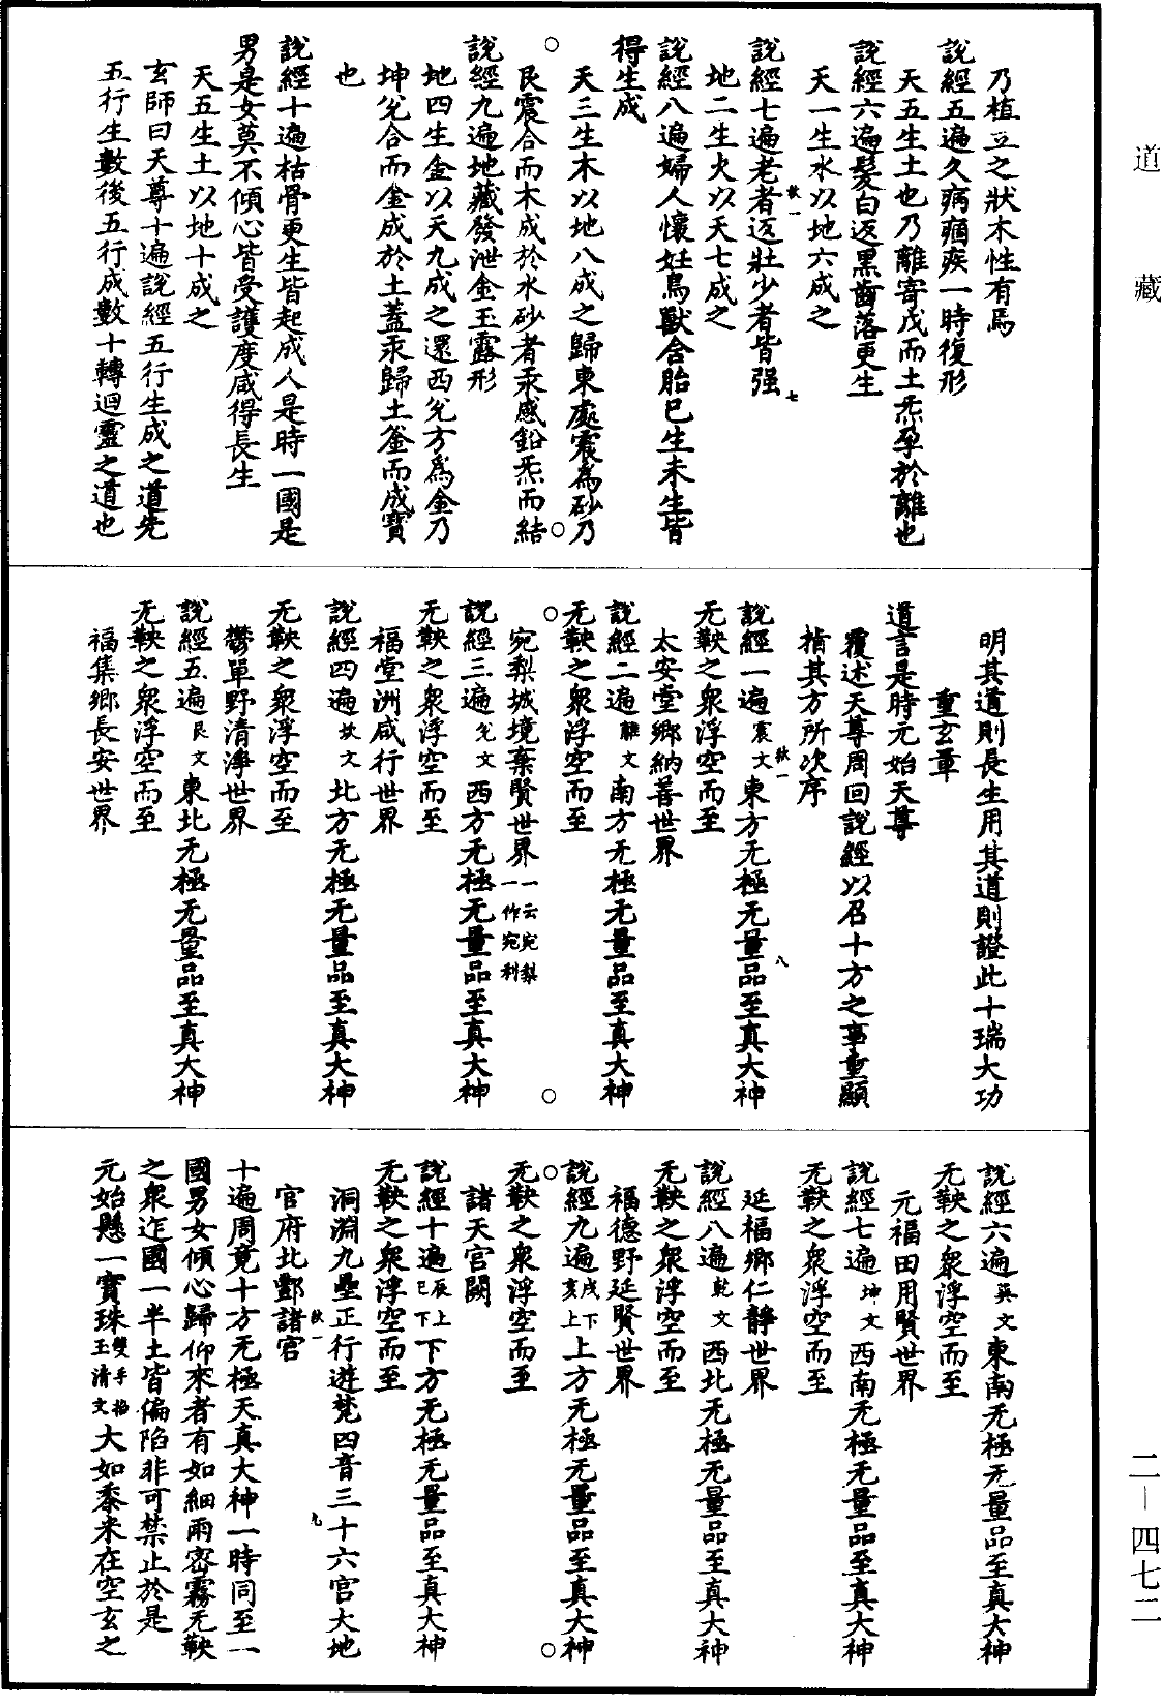 乃植立之狀木性有焉
說經五遍久病痼疾一時復形
天五生土也乃離寄戊而土炁孕於離也
說經六遍髮白返黑齒落更生
天一生水以地六成之
說經七遍老者返壯少者皆强
地二生火以天七成之
說經八遍婦人懷妊鳥獸含胎已生未生皆
得生成
天三生木以地八成之歸東處震為砂乃
艮震合而木成於水砂者汞感鉛炁而結
說經九遍地藏發泄金玉露形
地四生金以天九成之還西兌方爲金乃
坤兌合而金成於土蓋汞歸土釜而成寶
也
說經十遍枯骨更生皆起成人是時一國是
男是女莫不傾心皆受護度咸得長生
天五生土以地十成之
玄師曰天尊十遍說經五行生成之道先
五行生數後五行成數十轉迴靈之道也
明其道則長生用其道則證此十瑞大功
重玄章
道言是時元始天尊
覆述天尊周回說經以召十方之事重顯
指其方所次序
說經一遍震文東方无極无量品至真大神
无鞅之衆浮空而至
太安堂鄉納善世界
說經二遍離文南方无極无量品至真大神
无鞅之衆浮空而至
宛梨城境棄賢世界一云宛梨一作宛利
說經三遍兌文西方无極无量品至真大神
无鞅之衆浮空而至
福堂洲咸行世界
說經四遍坎文北方无極无量品至真大神
无鞅之衆浮空而至
鬱單野清淨世界
說經五遍艮文東北无極无量品至真大神
无鞅之衆浮空而至
福集鄉長安世界
說經六遍巽文東南无極无量品至真大神
无鞅之衆浮空而至
元福田用賢世界
說經七遍坤文西南无極无量品至真大神
无鞅之衆浮空而至
延福鄉仁靜世界
說經八遍乾文西北无極无量品至真大神
无鞅之衆浮空而至
福德野延賢世界
說經九遍戌下亥上上方无極无量品至真大神
无鞅之衆浮空而至
諸天宮闕
說經十遍辰上巳下下方无極无量品至真大神
无鞅之衆浮空而至
洞淵九壘正行遊梵四音三十六宮大地
官府北酆諸宮
十遍周竟十方无極天真大神一時同至一
國男女傾心歸仰來者有如細雨密霧无鞅
之衆迮國一半土皆偏陷非可禁止於是
元始懸一寶珠雙手掐玉清文大如黍米在空玄之
道藏
二—四七二